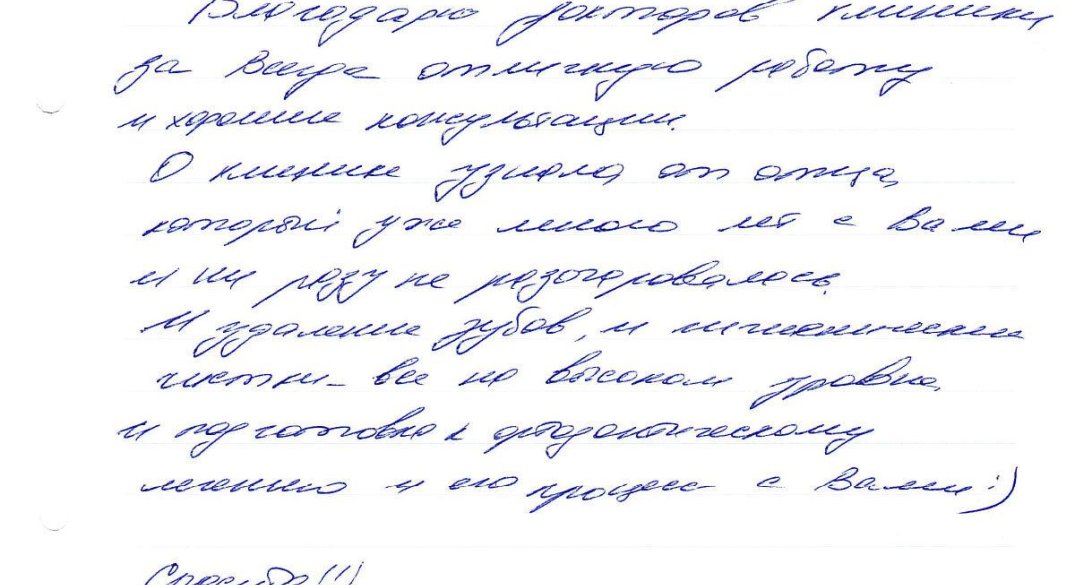 Благодарю докторов клиники
за всегда отличную работу
и хорошие консультации.
О клинике узнала от отца,
который уже много лет с Вами
и ни разу не разочаровалась.
И удаление зубов, и гигиенические
чистки - все на высоком уровне,
и подготовка к ортодонтическому
лечению и его процесс с Вами :)
Спасибо!!!